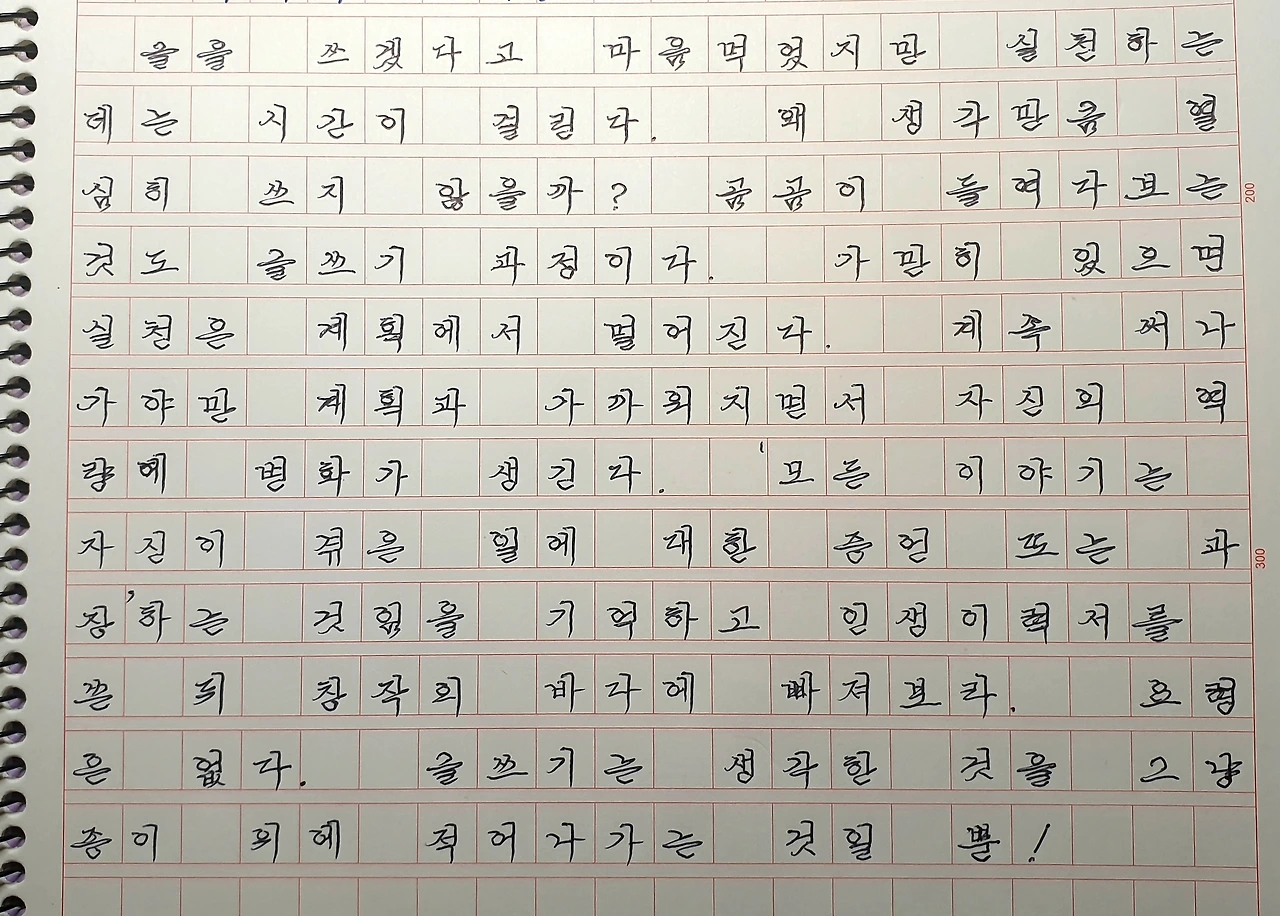 글을 쓰겠다고 마음먹었지만 실천하는
데는 시간이 걸린다. 왜 생각만큼 열
심히 쓰지 않을까? 곰곰이 들여다보는
것도 글쓰기 과정이다. 가만히 있으면
실천은 계획에서 멀어진다. 계속 써나
가야만 계획과 가까워지면서 자신의 역
량에 변화가 생긴다. '모든 이야기는
자신이 겪은 일에 대한 증언 또는 과
장'하는 것임을 기억하고 인생이력서를
쓴 뒤 창작의 바다에 빠져보라. 요령
은 없다. 글쓰기는 생각한 것을 그냥
종이 위에 적어나가는 것일 뿐!
200
300